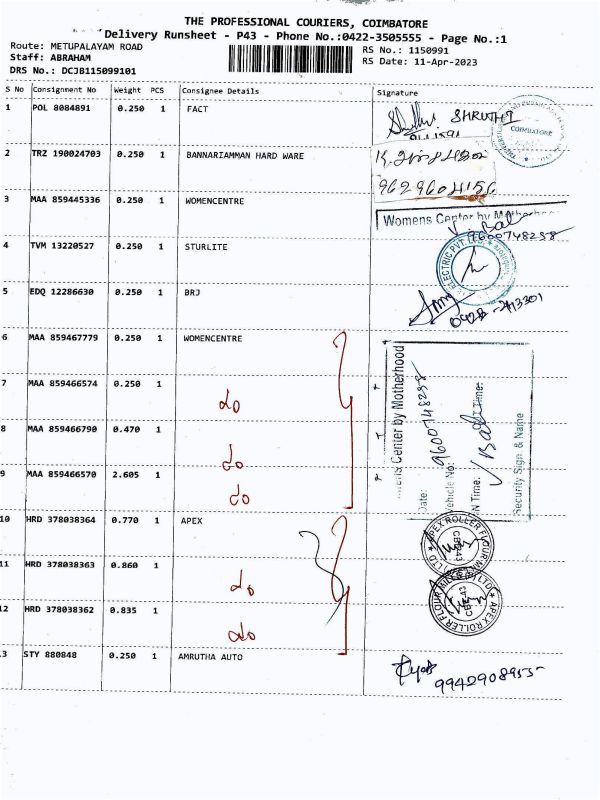 THE PROFESSIONAL COURIERS, COIMBATORE
Delivery Runsheet - P43 - Phone No.:0422-3505555 - Page No.:1
Route: METUPALAYAM ROAD
RS No.: 1150991
Staff: ABRAHAM
RS Date: 11-Apr-2023
DRS No.: DCJB115099101
S No Consignment No Weight PCS Consignee Details Signature
1 POL 8084891 0.250 1 FACT SHRUTHI
COIMBATORE
2 TRZ 190024703 0.250 1 BANNARIAMMAN HARD WARE
9629604156
3 MAA 859445336 0.250 1 WOMENCENTRE
Womens Center by Motherhood
9600748258
4 TVM 13220527 0.250 1 STURLITE
ELECTRIC PVT. LTD.
5 EDQ 12286630 0.250 1 BRJ
6 MAA 859467779 0.250 1 WOMENCENTRE
7 MAA 859466574 0.250 1 do
8 MAA 859466790 0.470 1 do
9 MAA 859466570 2.605 1 do
Womens Center by Motherhood
Date: 9600748258
Vehicle No:
IN Time: OUT Time:
Security Sign. & Name
10 HRD 378038364 0.770 1 APEX
APEX ROLLER FLOUR MILL
11 HRD 378038363 0.860 1 do
12 HRD 378038362 0.835 1 do
APEX ROLLER FLOUR MILL
13 STY 880848 0.250 1 AMRUTHA AUTO
9942908955